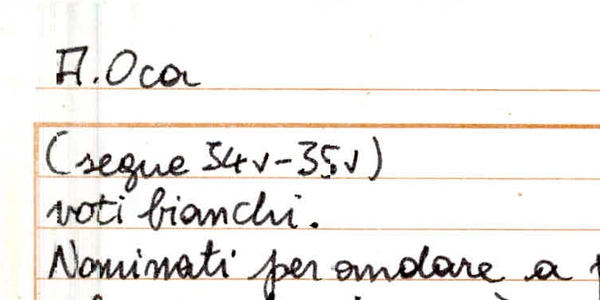 A. Oca
(segue 34v-35v)
voti bianchi.
Nominati per andare a